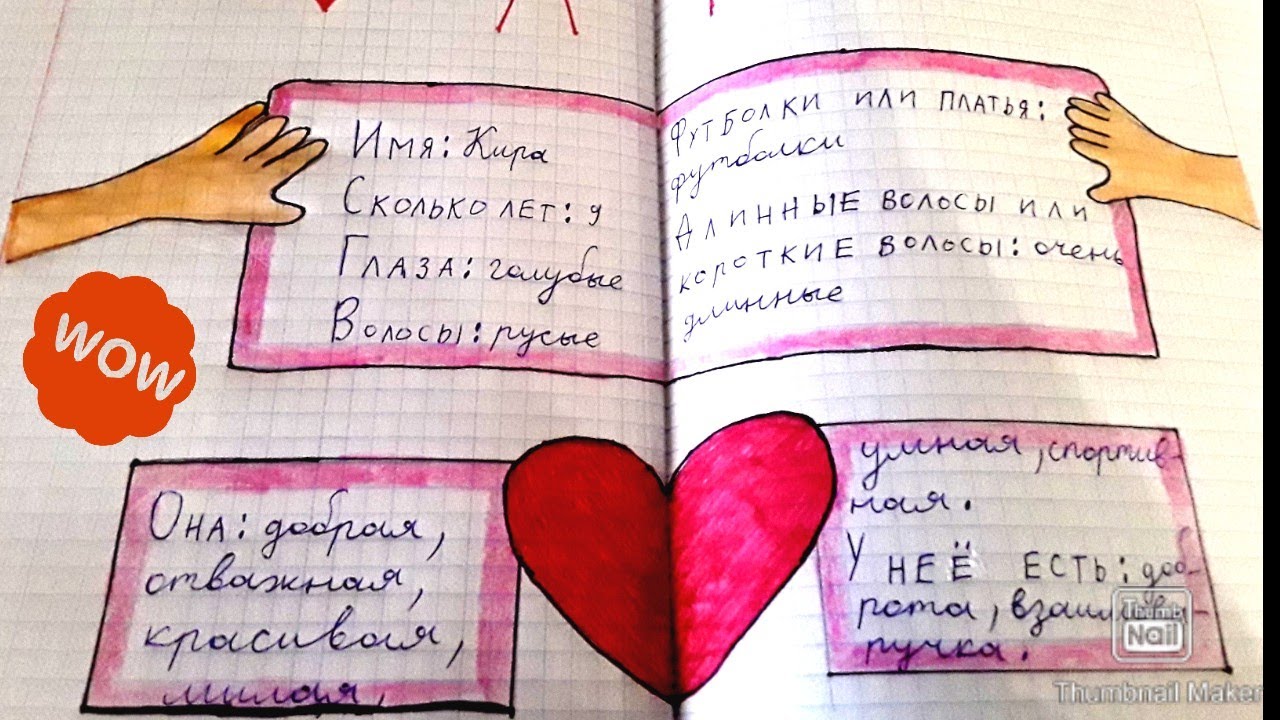 Имя: Кира
Сколько лет: 9
Глаза: голубые
Волосы: русые
Футболки или платья:
футболки
Длинные волосы или
короткие волосы: очень
длинные
WOW
Она: добрая,
отважная,
красивая,
милая,
умная, спортив-
ная.
У неё есть: доб-
рота,
ручка.
Thumb
Nail
Thumbnail Maker